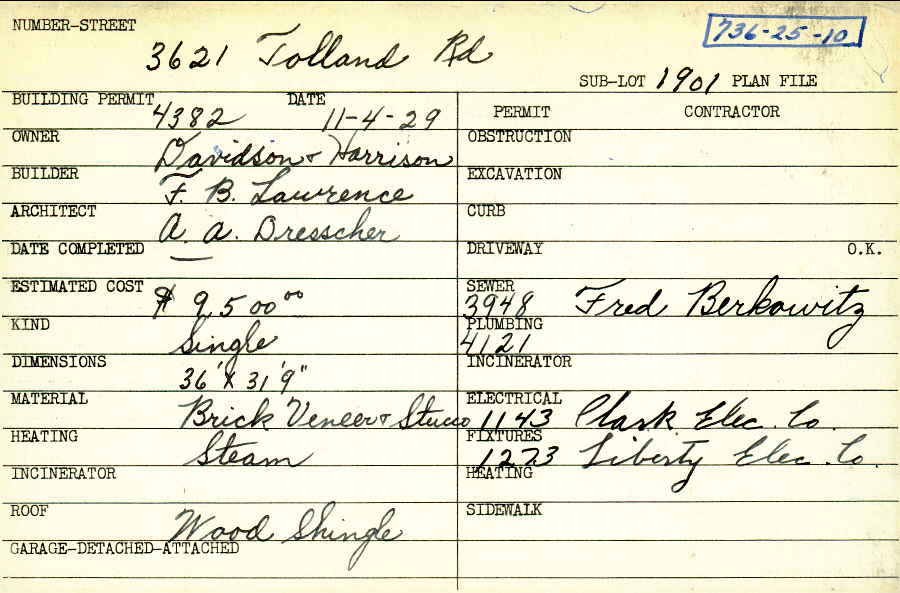 NUMBER-STREET
736-25-10
3621 Tolland Rd
SUB-LOT 1901 PLAN FILE
BUILDING PERMIT 4382 DATE 11-4-29
OWNER Davidson & Harrison
BUILDER F. B. Lawrence
ARCHITECT A. A. Dresscher
DATE COMPLETED —
ESTIMATED COST $ 9,500 00
KIND Single
DIMENSIONS 36' X 31' 9"
MATERIAL Brick Veneer & Stucco
HEATING Steam
INCINERATOR
ROOF Wood Shingle
GARAGE-DETACHED-ATTACHED
PERMIT CONTRACTOR
OBSTRUCTION
EXCAVATION
CURB
DRIVEWAY O.K.
SEWER 3948 Fred Berkowitz
PLUMBING 4121
INCINERATOR
ELECTRICAL 1143 Clark Elec. Co.
FIXTURES 1273 Liberty Elec. Co.
HEATING
SIDEWALK